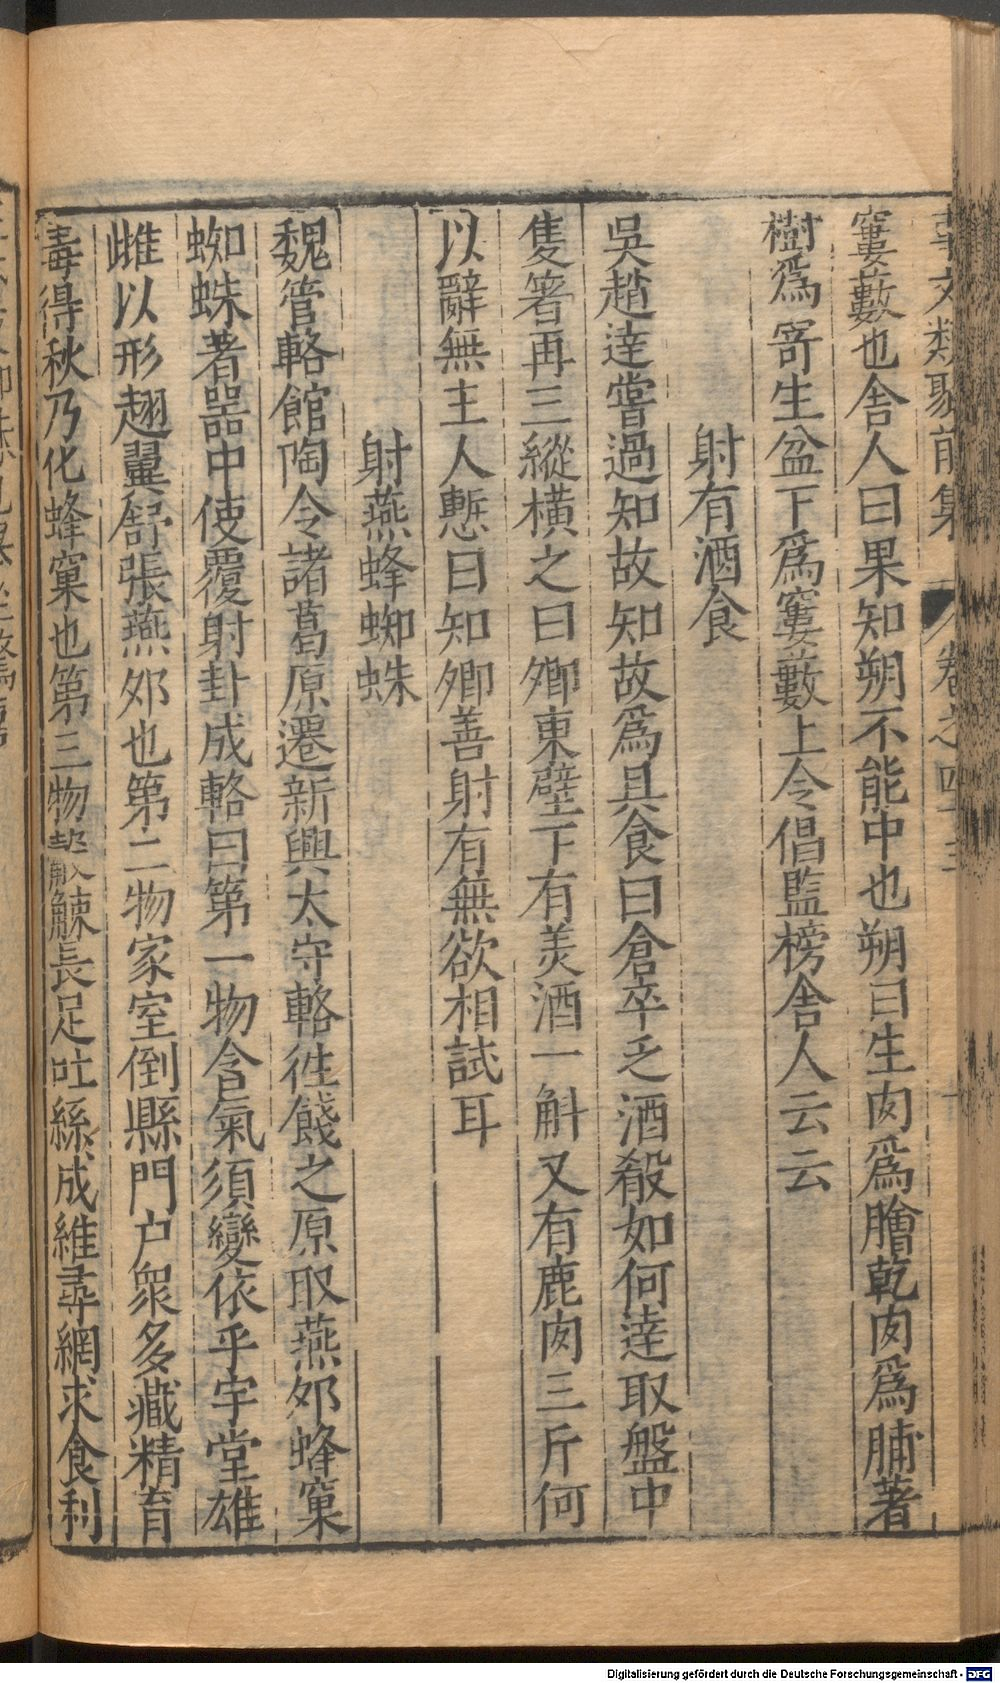 事文類聚前集 卷之四十三
窶藪也舍人曰果知朔不能中也朔曰生肉爲膾乾肉爲脯著
樹爲寄生盆下爲窶數上令倡監榜舍人云云
射有酒食
吳趙達嘗過知故知故爲具食曰倉卒乏酒殽如何達取盤中
隻箸再三縱橫之曰卿東壁下有美酒一斛又有鹿肉三斤何
以辭無主人慙曰知卿善射有無欲相試耳
射燕蜂蜘蛛
魏管輅館陶令諸葛原遷新興太守輅徃餞之原取燕夘蜂窠
蜘蛛著器中使覆射卦成輅曰第一物含氣須變依乎宇堂雄
雌以形翅翼舒張燕夘也第二物家室倒縣門户衆多藏精育
毒得秋乃化蜂窠也第三物觳觫長足吐絲成維尋網求食利
Digitalisierung gefördert durch die Deutsche Forschungsgemeinschaft - DFG